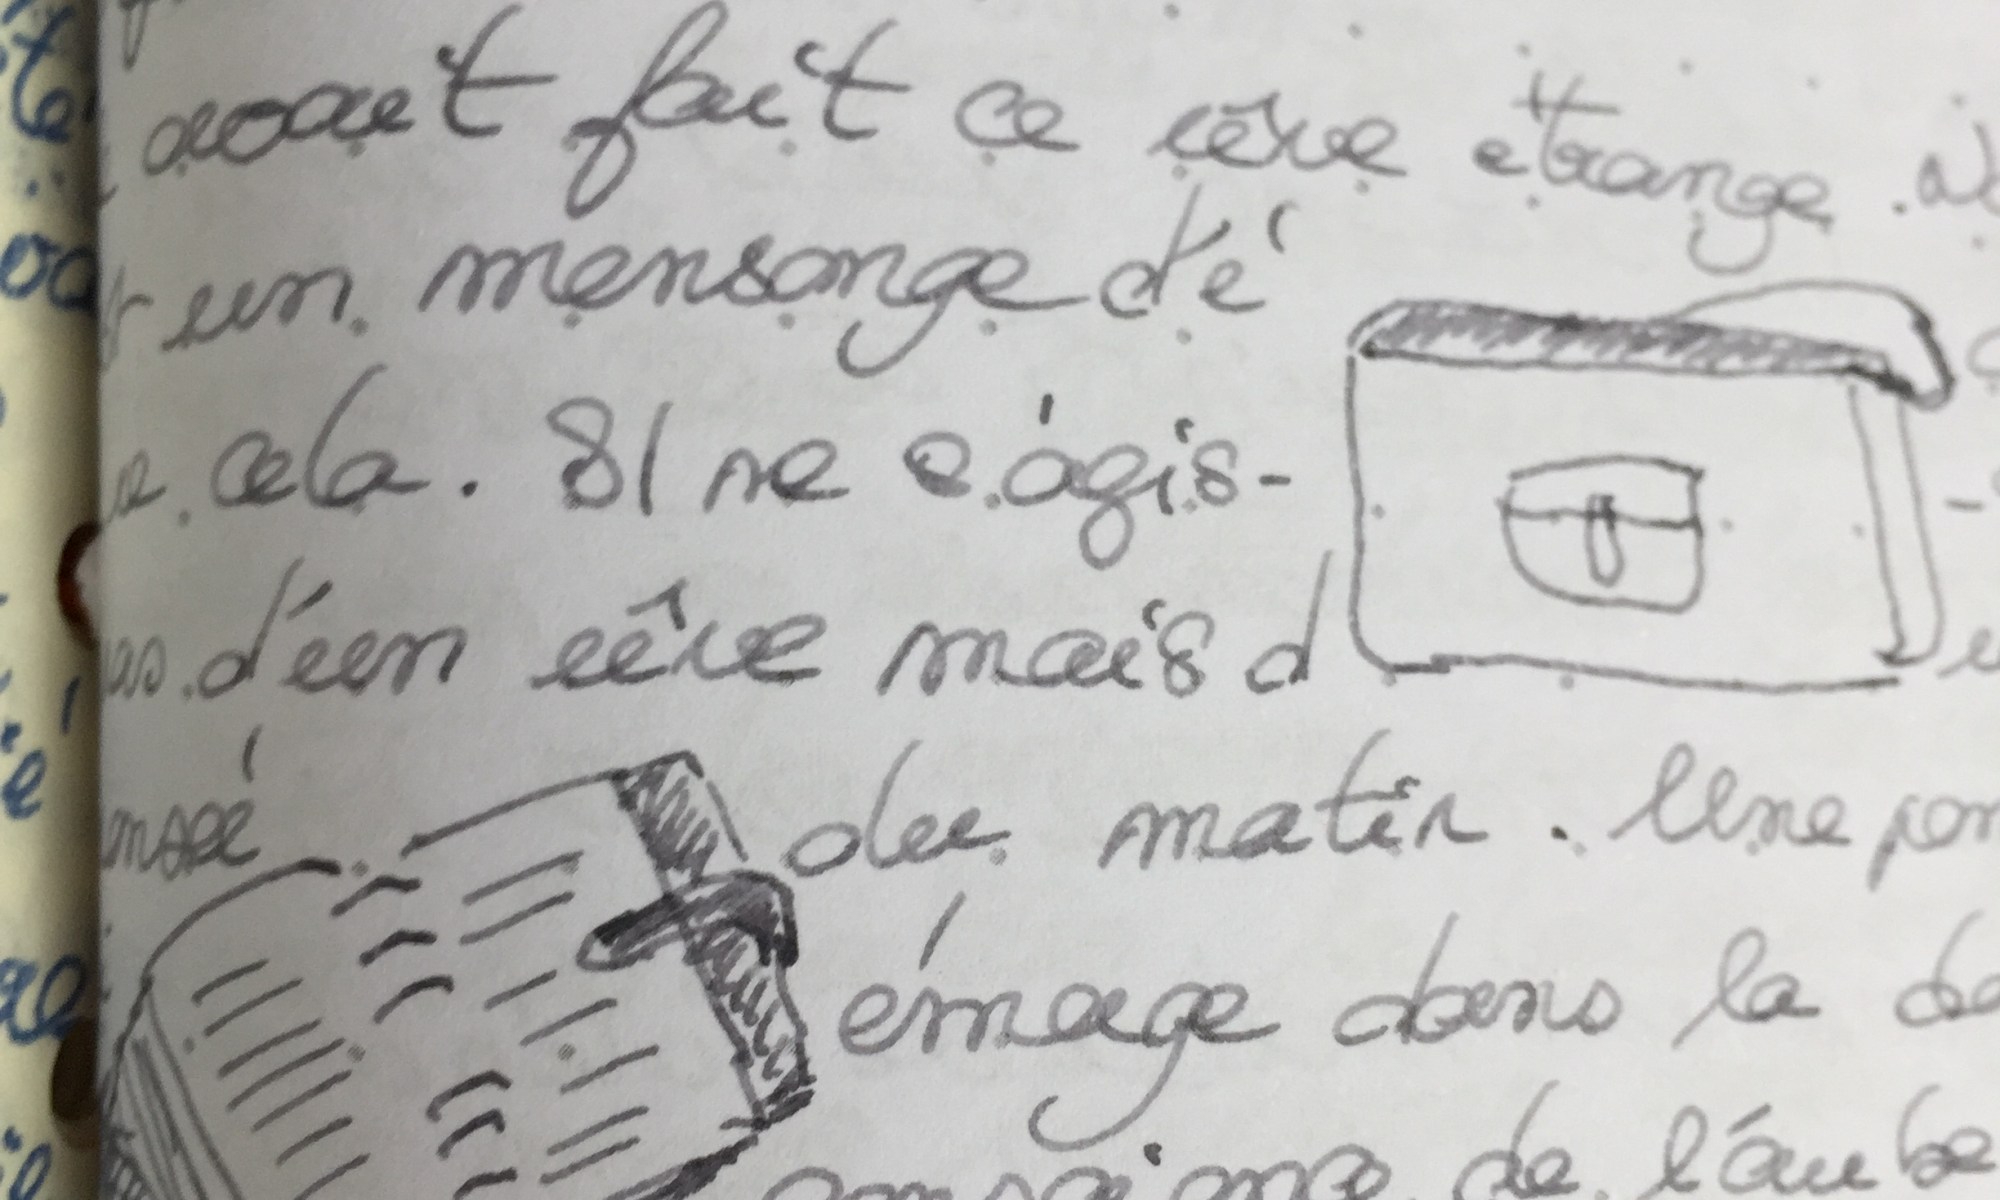 avait fait ce rêve etrange.
un mensonge d'é
cela. Il ne s'agis-
d'un rêve mais d
du matin. Une
émage dans la
de l'aube